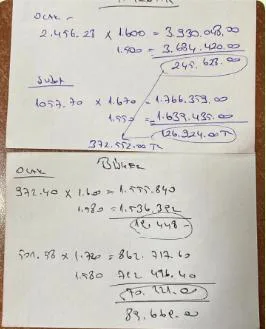 OCAK -
2.456.28 x 1.600 = 3.930.048.00
1.500 = 3.684.420.00
245.628.00
ŞUBAT
1057.70 x 1.670 = 1.766.359.00
1.550 = 1.639.435.00
126.924.00 TL
372.552.00 TL
BÜFE
OCAK
972.40 x 1.60 = 1.555.840
1.580 = 1.536.392
19.448 -
501.58 x 1.720 = 862.717.60
1.580 792.496.40
70.221.00
89.669.00